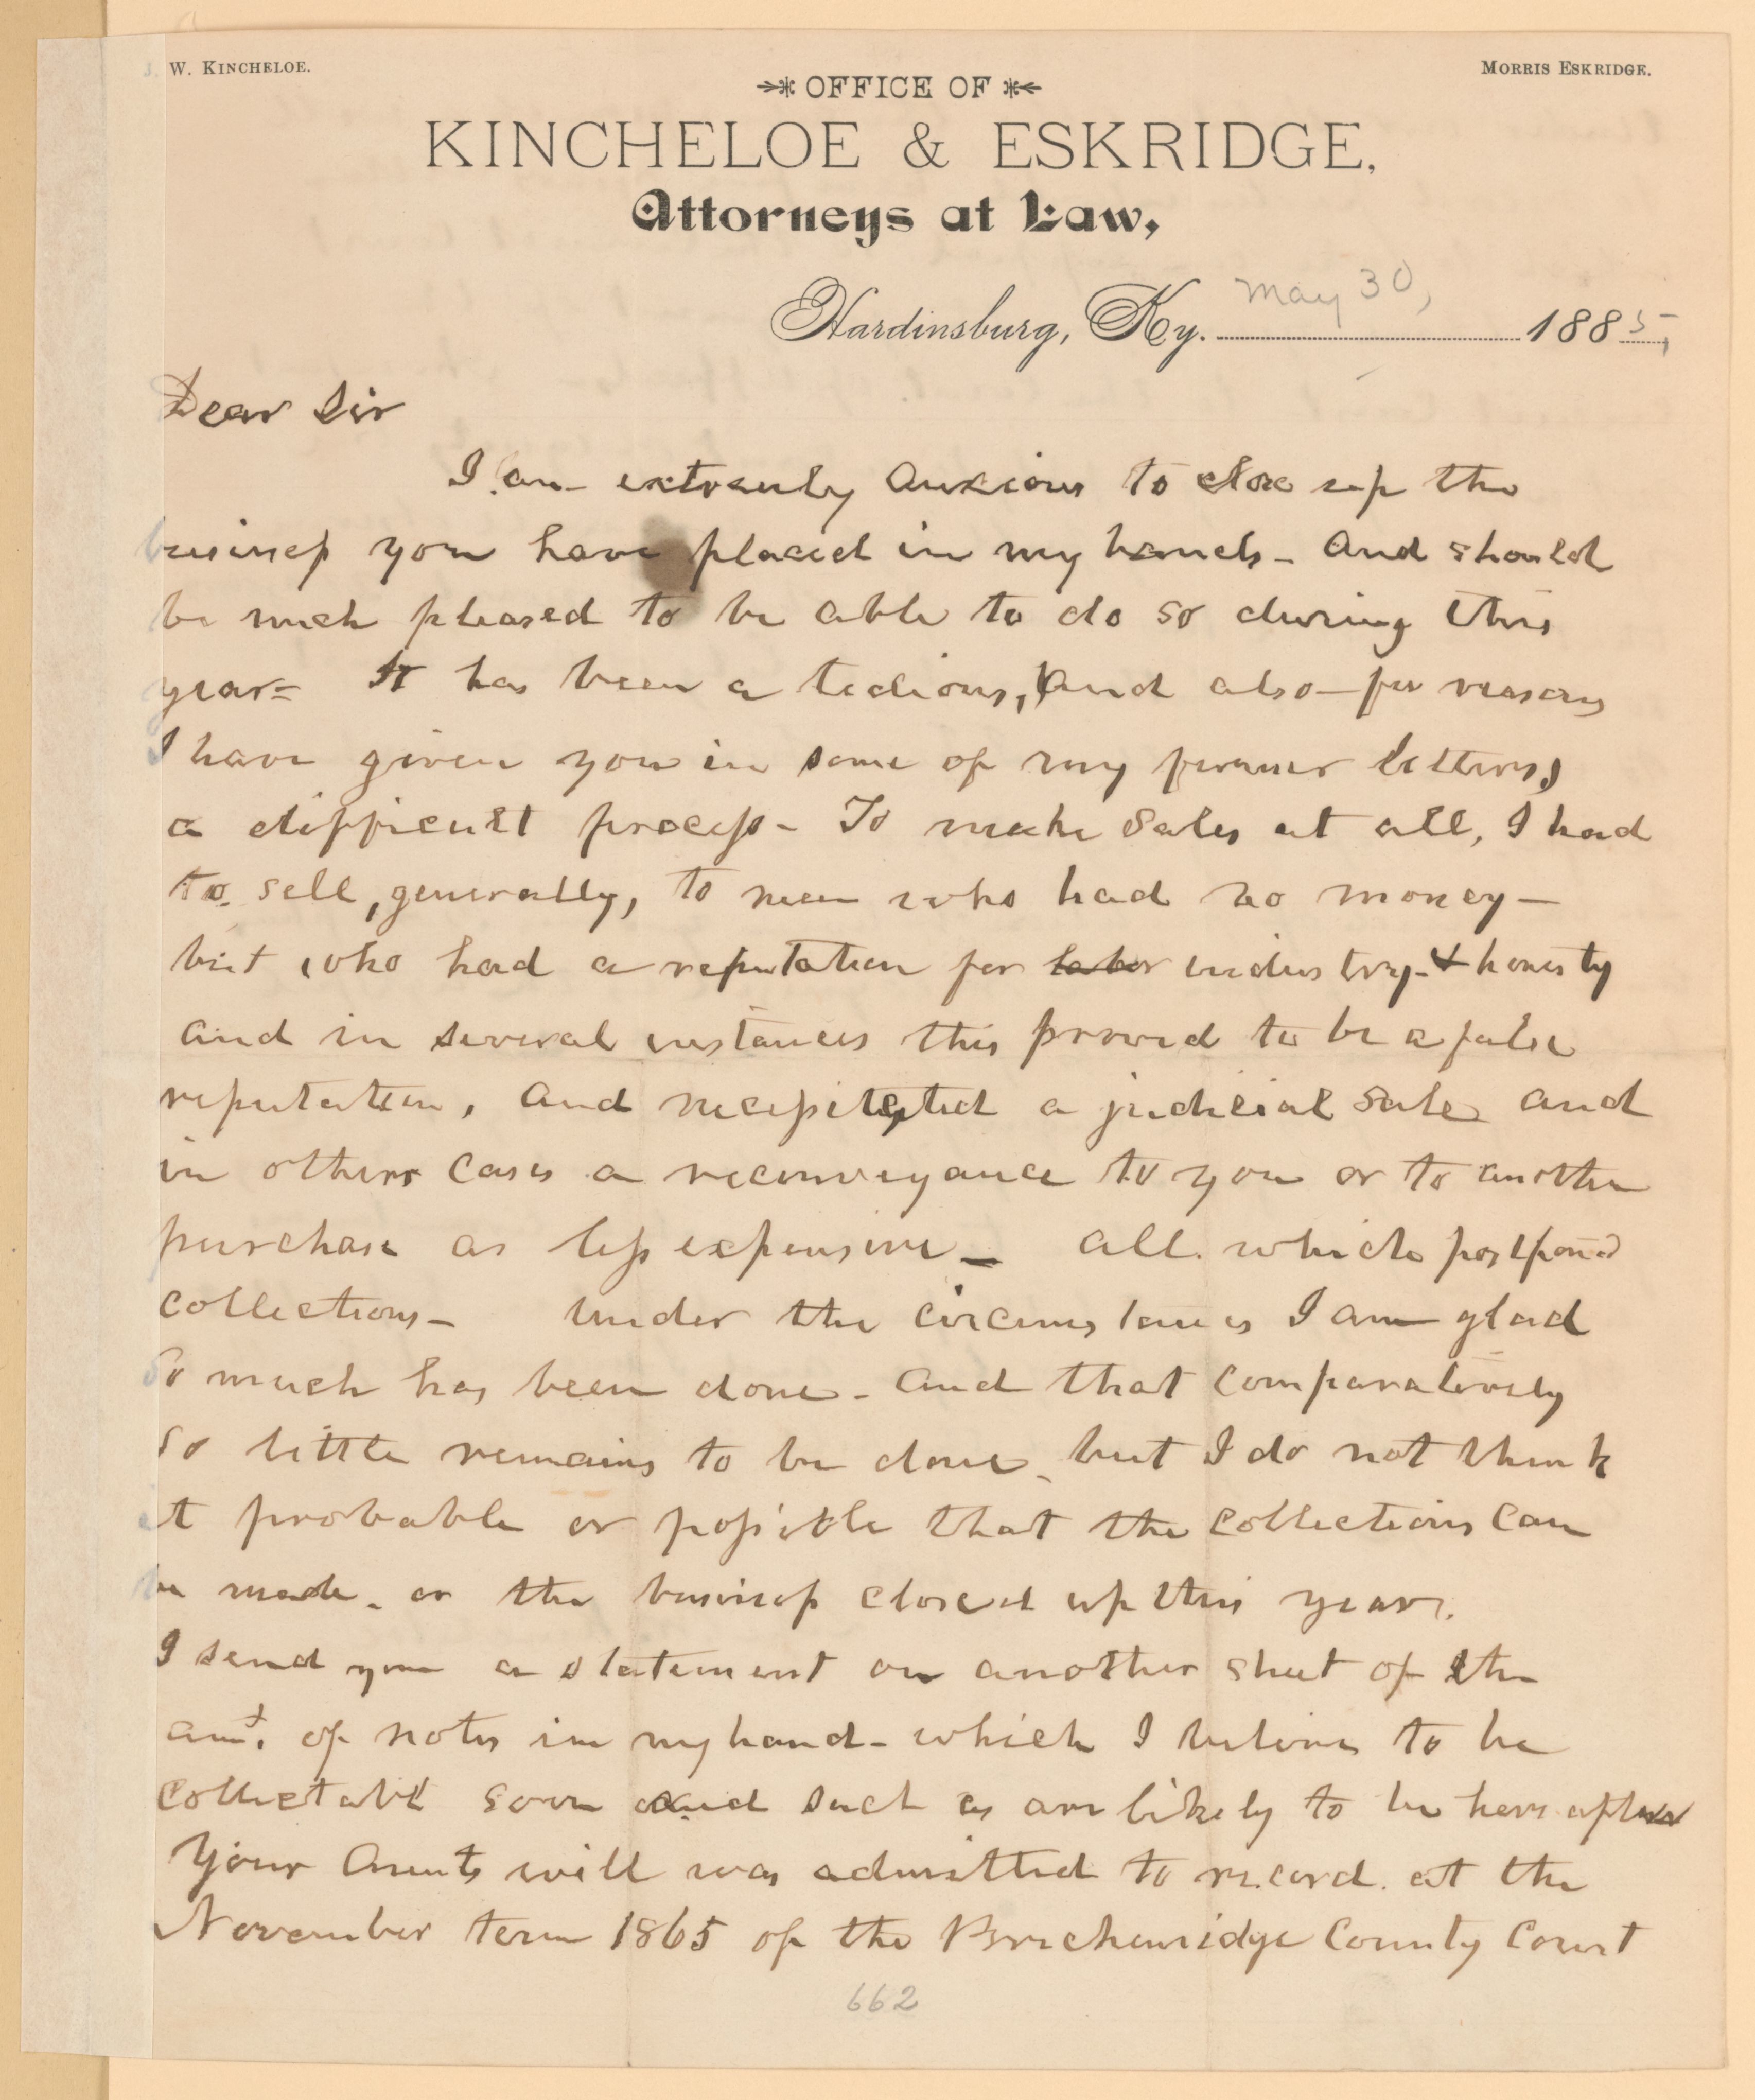 J. W. KINCHELOE.
MORRIS ESKRIDGE.
OFFICE OF
KINCHELOE & ESKRIDGE,
Attorneys at Law,
Hardinsburg, Ky. May 30, 1885,
Dear Sir
I am extremly anxious to close up the
business you have placed in my hands - and should
be much pleased to be able to do so during this
year = It has been a tedious, and also - for reasons
I have given you in some of my former letters,
a difficult process - To make sales at all, I had
to sell, generally, to men who had no money -
but who had a reputation for labor industry - & honesty
and in several instances this proved to be a false
reputation, and necessitated a judicial sale and
in others cases a reconveyance to you or to another
purchase as less expensive - all which postpon'd
collections - Under the circumstances I am glad
so much has been done - and that comparatively
so little remains to be done - but I do not think
it probable or possible that the collections can
be made - or the business closed up this year.
I send you a statement on another sheet of the
amt. of notes in my hand - which I believe to be
collectable soon and such as are likely to be hereafter
Your Aunts will was admitted to record at the
November term 1865 of the Breckenridge County Court
662